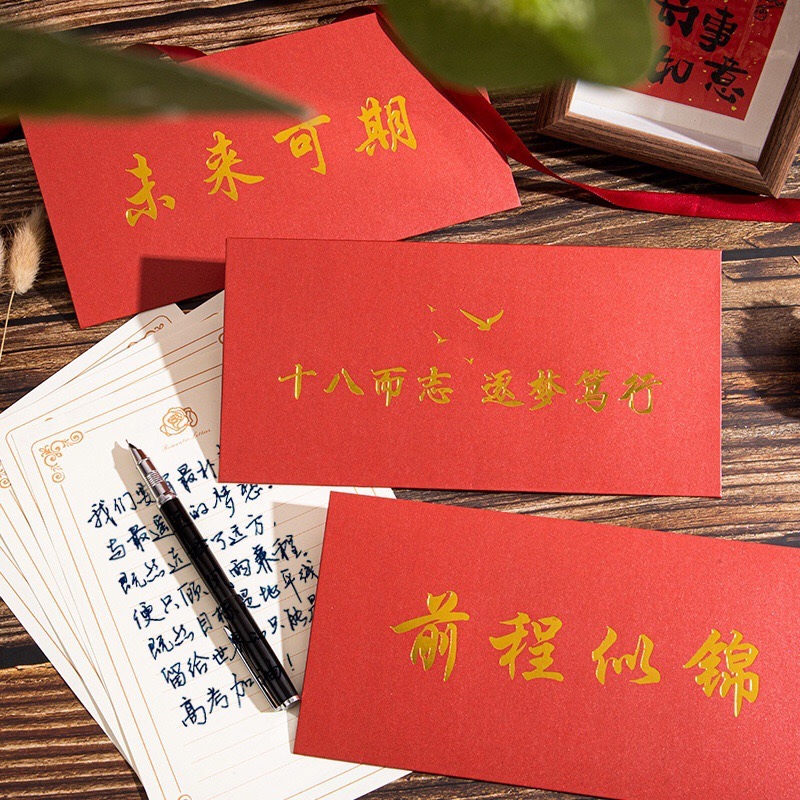 事意
如
未来可期
十八而志 逐梦笃行
Romantic Letters
我们要有最朴
与最遥的梦想
既然选了远方,
便只顾雨兼程.
既然目标是地平线
留给世界只能是
高考加油!
前程似锦